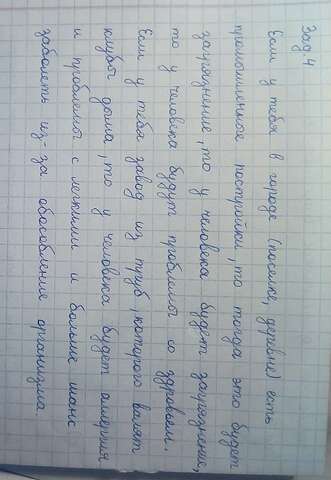 Зад 4
Если у тебя в городе (поселке, деревне) есть
промышленное постройки, то тогда это будет
загрязнение, то у человека будет загрязнение,
то у человека будут проблемы со здоровьем.
Если у тебя завод из труб, которого валят
клубы дыма, то у человека будет аллергия
и проблемы с легкими и больше шанс
заболеть из-за обособление организма.